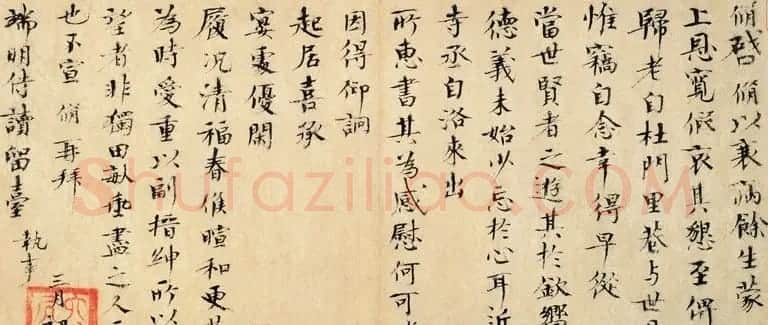 脩啓脩以衰病餘生蒙
上恩寬假哀其懇至俾
歸老自杜門里巷与世日
惟竊自念幸得早從
當世賢者之遊其於欽嚮
德義未始少忘於心耳近
寺丞自洛來出
所惠書其為感慰何可
因得仰詢
起居喜承
宴處優閑
履況清福春候暄和更
為時愛重以副搢紳所以
望者非獨田畝垂盡之人
也不宣 脩再拜
端明侍讀留臺 執事
三月
Shufaziliao.COM